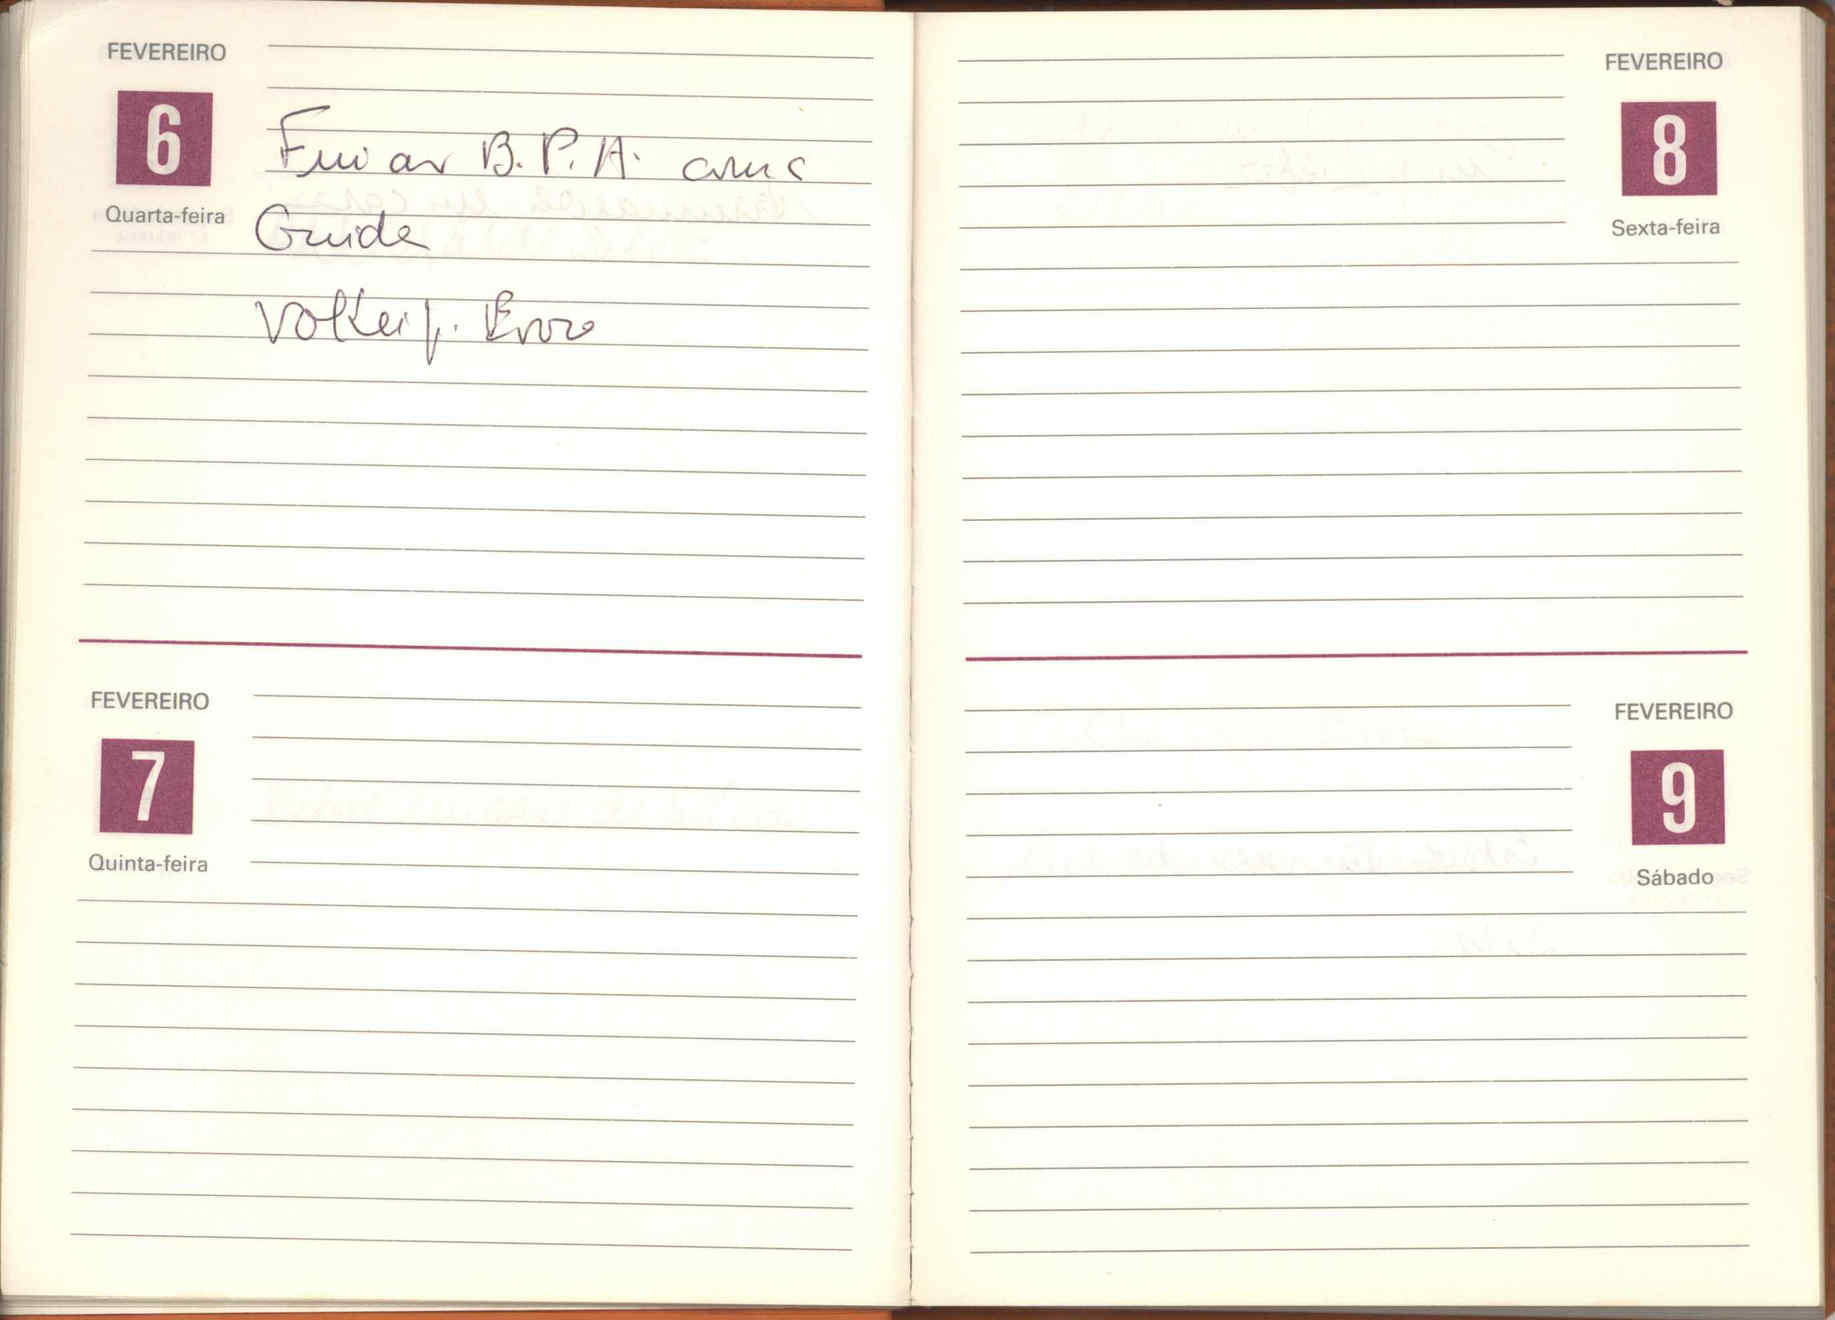 FEVEREIRO
6
Quarta-feira
Fui ao B.P.A. com a
Guida
Voltei p. Évora
FEVEREIRO
7
Quinta-feira
FEVEREIRO
8
Sexta-feira
FEVEREIRO
9
Sábado